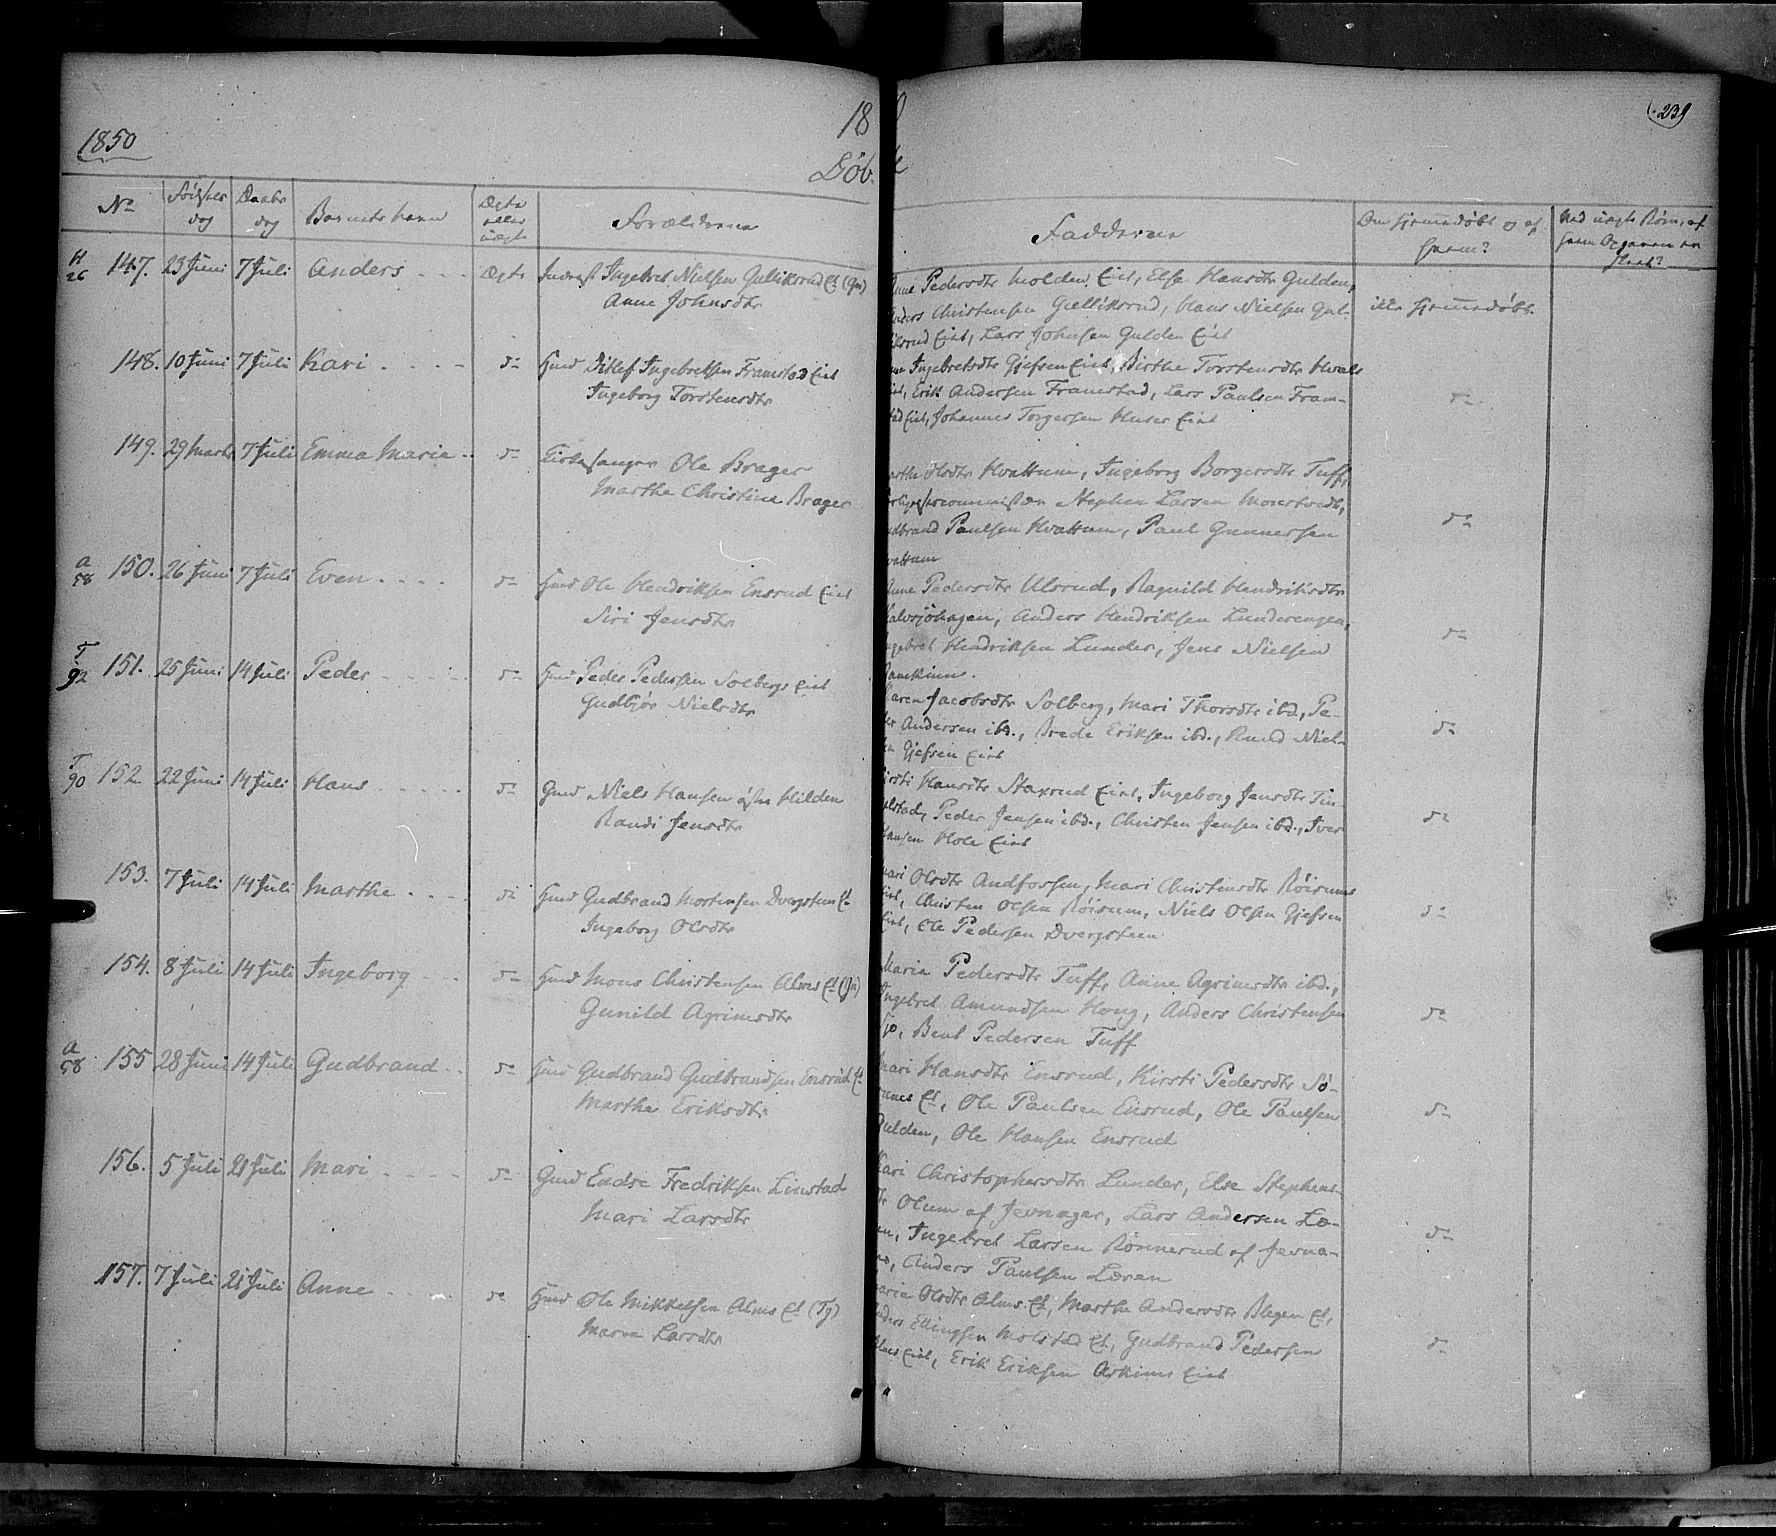 1850
1850
239
Døbte
No
Fødsels dag
Daabs dag
Barnets navn
Ægte eller uægte
Forældrene
Fadderne
Om hjemmedøbt og af hvem?
Ved uægte Børn, af
H 26 147. 23 Juni 7 Juli Anders Ægte Inderst Ingebret Nielsen Gulliksrud Et (Gn)
Anne Johnsdtr
Anne Pedersdtr Molden Eiet, Else Hansdtr Gulden,
Anders Christensen Gulliksrud, Hans Nielsen Gul-
liksrud Eiet, Lars Johnsen Gulden Eiet
ikke hjemmedøbt.
148. 10 Juni 7 Juli Kari do Hmd Ditlef Ingebretsen Framstad Eiet
Ingeborg Torstensdtr
Ingebretsdtr Gjefsen Eiet, Birthe Torstensdtr Hvals
Eiet, Erik Andersen Framstad, Lars Paulsen Fram-
stad Eiet, Johannes Torgersen Huser Eiet
do
149. 29 Marts 7 Juli Emma Marie do Kirkesanger Ole Brager
Marthe Christine Brager
Marthe Olsdtr Hvattum, Ingeborg Borgersdtr Tuff,
Stephen Larsen Morstvedt,
Gudbrand Paulsen Hvattum, Paul Gunnersen
Hvattum
do
A 58 150. 26 Juni 7 Juli Even do Hmd Ole Hendriksen Ensrud Eiet
Siri Jensdtr
Anne Pedersdtr Ulsrud, Ragnild Hendriksdtr
Kalvsjøhagen, Anders Hendriksen Lunderengen,
Ingebret Hendriksen Lunder, Jens Nielsen
do
T 92 151. 25 Juni 14 Juli Peder do Hmd Peder Pedersen Solbergs Eiet
Gudbjør Nielsdtr
Karen Jacobsdtr Solberg, Mari Thorsdtr ibd., Pe-
der Andersen ibd., Brede Eriksen ibd., Knud Niel-
sen Gjefsen Eiet
do
T 90 152 22 Juni 14 Juli Hans do Gmd Niels Hansen østre Hilden
Randi Jensdtr
Kirsti Hansdtr Staxrud Eiet, Ingeborg Jensdtr Tin-
gelstad, Peder Jensen ibd., Christen Jensen ibd., Iver
Hansen Hole Eiet
do
153. 7 Juli 14 Juli Marthe do Hmd Gudbrand Mortensen Dvergsteen Et
Ingeborg Olsdtr
Mari Olsdtr Andfossen, Mari Christensdtr Røisums
Eiet, Christen Olsen Røisum, Niels Olsen Gjefsen
Eiet, Ole Pedersen Dvergsteen
do
154. 8 Juli 14 Juli Ingeborg do Hmd Mons Christensen Alms Et (Gn)
Gunild Agrimsdtr
Maria Pedersdtr Tuff, Anne Agrimsdtr ibd.,
Ingebret Amundsen Houg, Anders Christensen
Sjo, Bent Pedersen Tuff
do
A 58 155 28 Juni 14 Juli Gudbrand do Hmd Gudbrand Gudbrandsen Ensrud Et
Marthe Eriksdtr
Mari Hansdtr Ensrud, Kirsti Pedersdtr Sø-
Et, Ole Paulsen Ensrud, Ole Paulsen
Gulden, Ole Hansen Ensrud
do
156. 5 Juli 21 Juli Mari do Gmd Endre Fredriksen Linstad
Mari Larsdtr
Kari Christophersdtr Lunder, Else Stephens-
dtr Olum af Jevnager, Lars Andersen Læ-
ren, Ingebret Larsen Rønnerud af Jevna-
ger, Anders Paulsen Læren
do
157. 7 Juli 21 Juli Anne do Hmd Ole Mikkelsen Alms Et (Tg)
Maren Larsdtr
Maria Olsdtr Alms Et, Marthe Andersdtr Blegen Et,
Anders Ellingsen Molstad Et, Gudbrand Pedersen
Alms Eiet, Erik Eriksen Askims Eiet
do